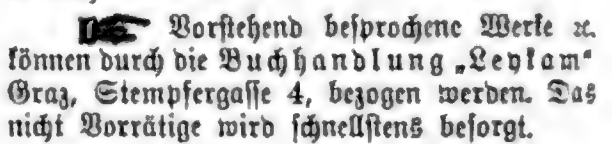 ☛ Vorstehend besprochene Werke ꝛc.
können durch die Buchhandlung „Leykam“
Graz, Stempfergasse 4, bezogen werden. Das
nicht Vorrätige wird schnellstens besorgt.